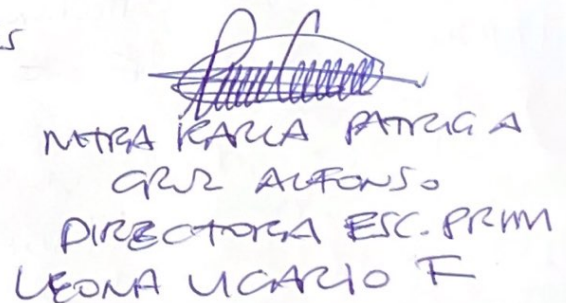 MTRA KARLA PATRICIA
CRUZ ALFONSO
DIRECTORA ESC. PRIM
LEONA VICARIO F